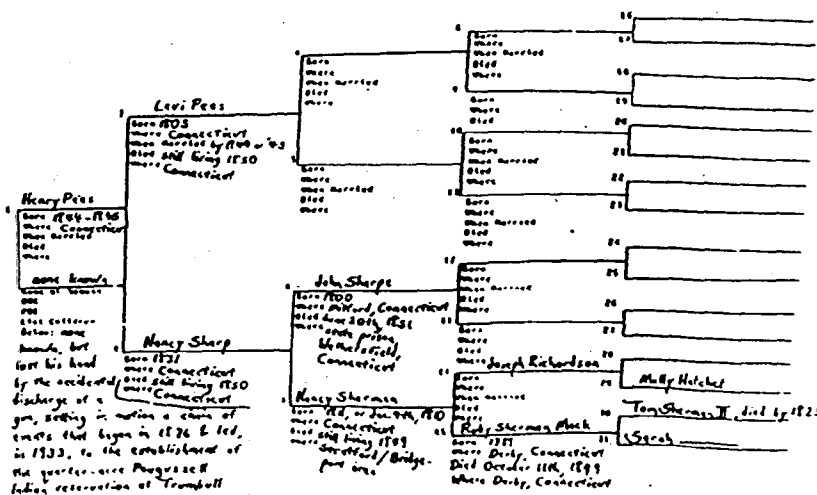 1
Henry Pees
Born 1844-1845
Where Connecticut
When married
Died
Where
none known
Name of Spouse
below: none
known, but
lost his hand
by the accidental
discharge of a
gun, setting in motion a chain of
events that began in 1876 & led,
in 1933, to the establishment of
the quarter-acre
Indian reservation at Trumbull
2
Levi Pees
Born 1803
Where Connecticut
When married by 1844 or '45
Died still living 1850
Where Connecticut
3
Nancy Sharp
Born 1831
Where Connecticut
Died still living 1850
Where Connecticut
4
Born
Where
When married
Died
Where
5
Born
Where
When married
Died
Where
6
John Sharpe
Born 1800
Where Milford, Connecticut
Died June 30th, 1856
Where state prison,
Wethersfield,
Connecticut
7
Nancy Sherman
Where Connecticut
Died still living 1849
Where Stratford/Bridge-
port area
8
Born
Where
When married
Died
Where
9
Born
Where
Died
10
Born
Where
When married
Died
Where
11
Born
Where
When married
Died
Where
12
Born
Where
When married
Died
Where
13
Born
Where
Died
Where
14
Joseph Richardson
Born
Where
When married
Died
Where
15
Ruby Sherman Mack
Born
Where Derby, Connecticut
Died October 11th, 1899
Where Derby, Connecticut
16
17
18
19
20
21
22
23
24
25
26
27
28
29
Molly Hatchet
30
Tom Sherman II, died by 1825
31
Sarah